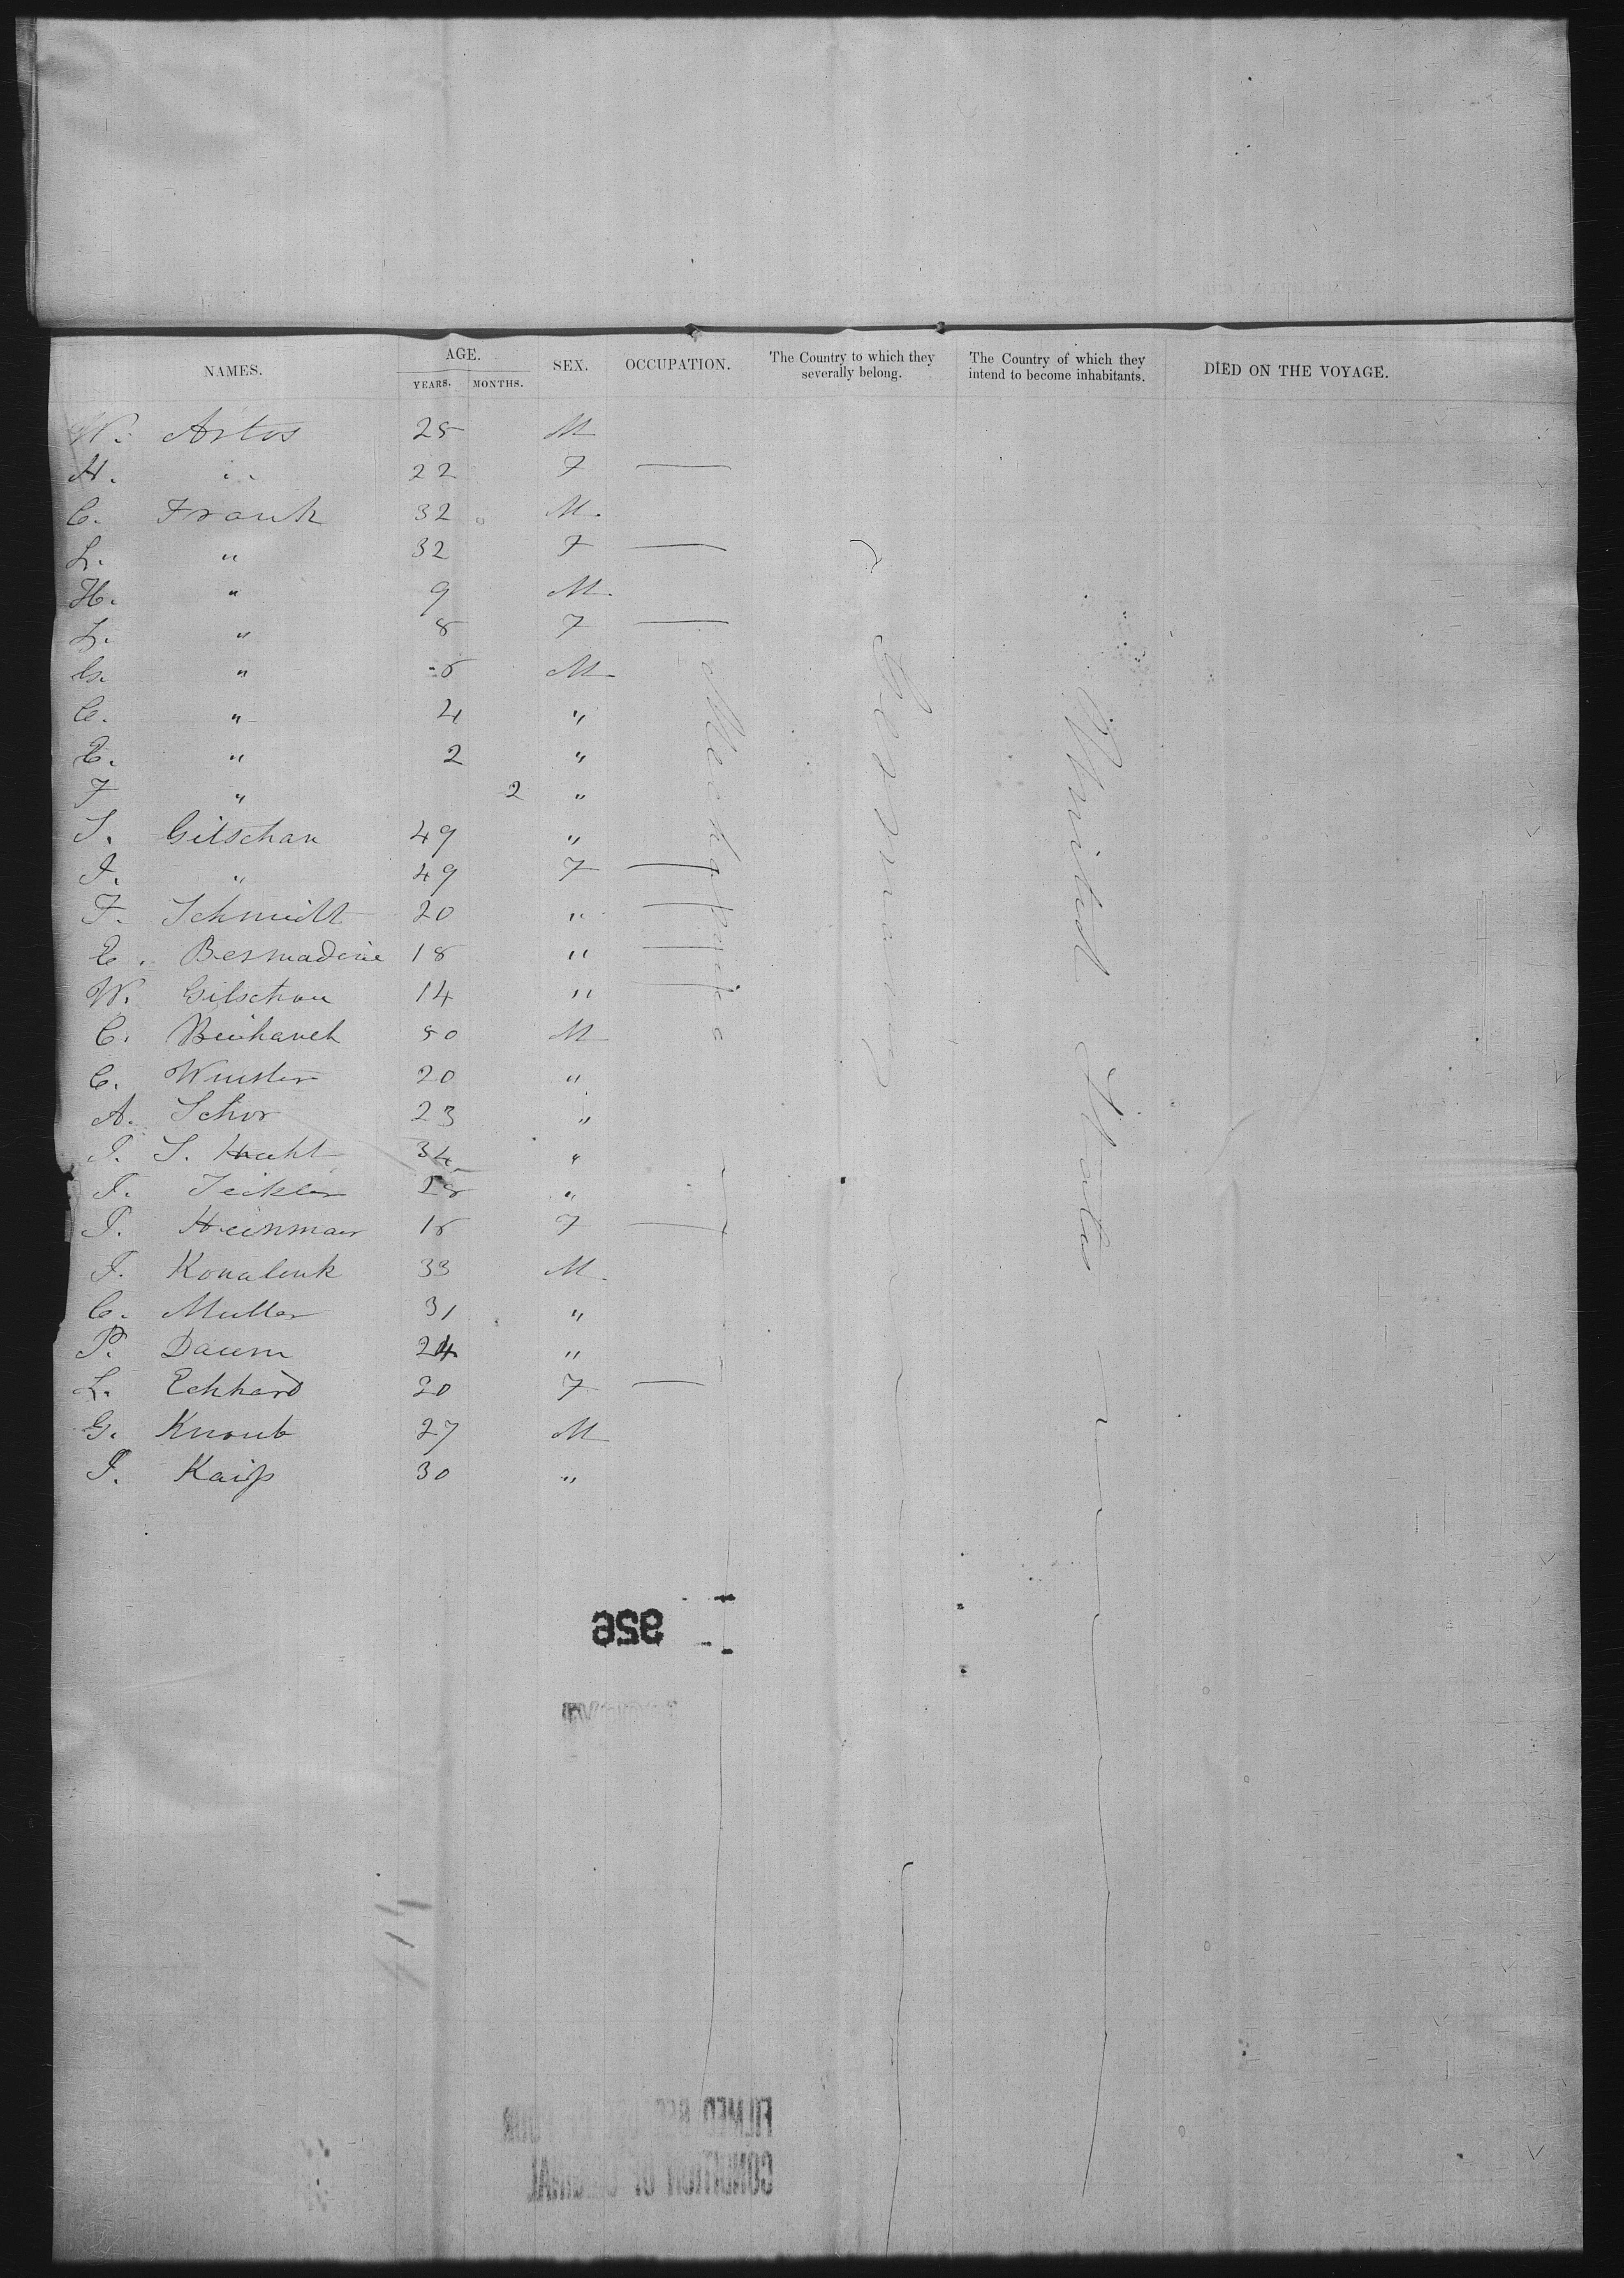 NAMES. AGE. YEARS. MONTHS. SEX. OCCUPATION. The Country to which they severally belong. The Country of which they intend to become inhabitants. DIED ON THE VOYAGE.
W. Artos 25 M
H. " 22 F —
C. Frank 32 M.
L. " 32 F —
H. " 9 M.
L. " 8 F —
G. " M
C. " 4 "
E. " 2 "
F " 2 "
S. Gilschan 49 "
I. " 49 F —
F. Schmidt 20 " —
E. Bernadine 18 " —
W. Gilschan 14 " —
C. 50 M
C. Wuster 20 "
A. Schor 23 "
I. S. Hecht 34 "
F. "
I. Heinman F —
I. Konalenk 33 M.
C. Muller 31 "
P. Daum 24 "
L. Eckhard 20 F —
G. Knoub 27 M
I. Kaiss 30 "
Germany
United States
356
FILMED BECAUSE OF POOR
CONDITION OF ORIGINAL